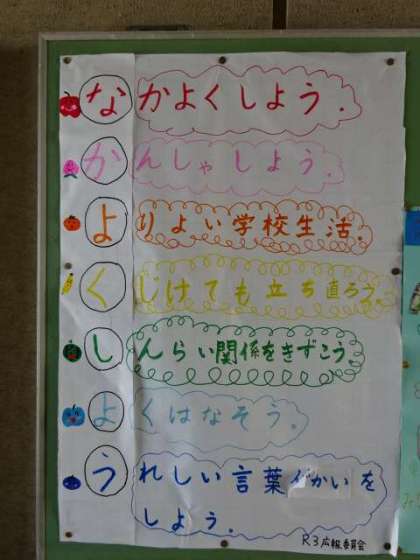 なかよくしよう.
かんしゃしよう.
よりよい学校生活.
くじけても立ち直ろう.
しんらい関係をきずこう.
よくはなそう.
うれしい言葉づかいを
しよう.
R3広報委員会